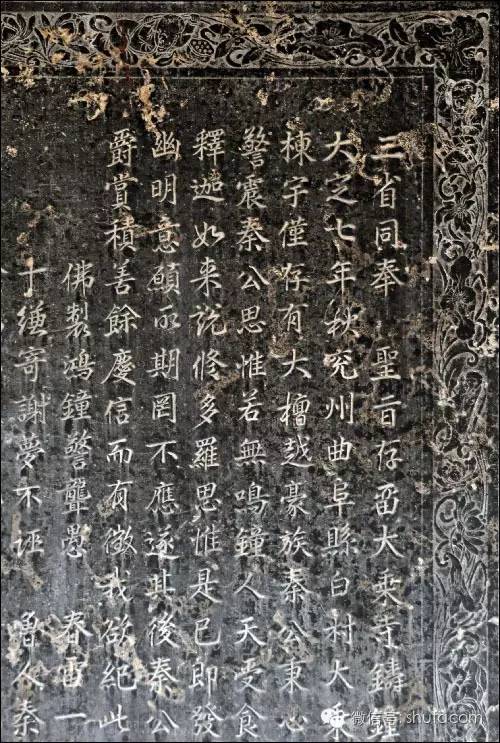 三省同奉　聖旨存畱大乘寺鑄鐘
大定七年秋兖州曲阜縣白村大
棟宇僅存有大檀越豪族秦公秉心
警震秦公思惟若無鳴鐘人天受食
釋迦如来說修多羅思惟是已即發
幽明意願所期罔不應遂其後秦公
爵賞積善餘慶信而有徵我欲紀此
佛製鴻鐘警聾愚　春雷一
丁綞寄謝夢不誣　魯人秦
微信号: shufacom